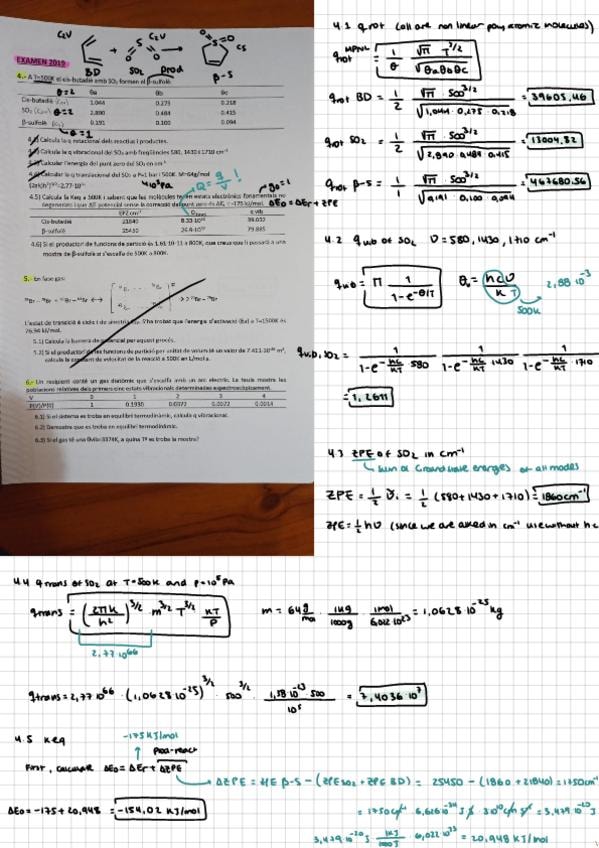 C2V
C2V
+
→
CS
BD
SO2
prod
β-S
EXAMEN 2019
4.- A T=500K el cis-butadiè amb SO2 formen el β-sulfolè.
θa θb θc
Cis-butadiè (C2V) 1.044 0.275 0.218
SO2 (C2V) 2.890 0.484 0.415
β-sulfolè (Cs) 0.191 0.100 0.094
Calcula la q rotacional dels reactius i productes.
Calcula la q vibracional del SO2 amb freqüències 580, 1430 i 1710 cm-1
Calcular l'energia del punt zero del SO2 en cm-1
Calcular la q translacional del SO2 a P=1 bar i 500K. M=64g/mol
10^5 Pa
4.5) Calcula la Keq a 500K
EPZ cm-1 q vib
Cis-butadiè 21840
β-sulfolè 25450 79.885
4.6) Si el producte de funcions de partició és 1.61·10-11 a 800K,
mostra de β-sulfolè si s'escalfa de 500K a 800K.
5. En fase gas:
L'estat de transició és
76.94 kJ/mol.
5.1) Calcula la barrera de potencial per aquest procés.
6.- Un recipient conté un gas diatòmic que s'escalfa amb un arc elèctric.
poblacions relatives dels primers cinc estats vibracionals determinades espectroscòpicament.
V 0 1 2 3 4
1 0.1930 0.0372 0.0072 0.0014
6.1) Si el sistema es troba en equilibri termodinàmic, calcula q vibracional.
6.2) Demostra que es troba en equilibri termodinàmic.
6.3) Si el gas té una θvib=3374K, a quina Tª es troba la mostra?
4.1 q rot (all are non linear poly atomic molecules)
q rot MPNL = 1/θ √π T^3/2 / √θaθbθc
q rot BD = 1/2 √π · 500^3/2 / √1,044·0,275·0,218 = 39605,46
q rot SO2 = 1/2 √π · 500^3/2 / √2,890·0,484·0,415 = 13004,82
q rot β-S = 1/1 √π · 500^3/2 / √0,191·0,100·0,094 = 467680.56
4.2 q vib of SO2 ν = 580, 1430, 1710 cm-1
q vib = Π 1/1-e^-θ/T θv = hcν/kT 2,88 10^-3
500K
q vib, SO2 = 1/1-e^-hc/kT 580 1/1-e^-hc/kT 1430 1/1-e^-hc/kT ·1710
= 1,2611
4.3 ZPE of SO2 in cm-1
↳ sum of Ground state energies of all modes
ZPE = 1/2 ν̃i = 1/2 (580+1430+1710) = 1860 cm-1
ZPE = 1/2 hν (since we are asked in cm-1 use without hc
4.4 q trans of SO2 at T=500K and p=10^5 Pa
q trans = (2πk/h²)^3/2 · m^3/2 T^3/2 kT/P
m = 64 g/mol · 1kg/1000g · 1mol/6,022 10^23 = 1,0628 10^-25 kg
2,77 10^66
q trans = 2,77 10^66 · (1,0628 10^-25)^3/2 · 500^3/2 · 1,38 10^-23 · 500/10^5 = 7,4036 10^7
4.5 Keq
-175 KJ/mol
prod-react
First, calculate ΔE0 = ΔEr + ΔZPE
→ ΔZPE = ZPE β-S - (ZPE SO2 + ZPE BD) = 25450 - (1860 + 21840) = 1750 cm-1
ΔE0 = -175 + 20,948 = -154,02 KJ/mol
= 1750 cm-1 · 6,626 10^-34 J s · 3 10^10 cm/s = 3,479 10^-20 J
3,479 10^-20 J · 1KJ/1000J · 6,022 10^23 = 20,948 KJ/mol